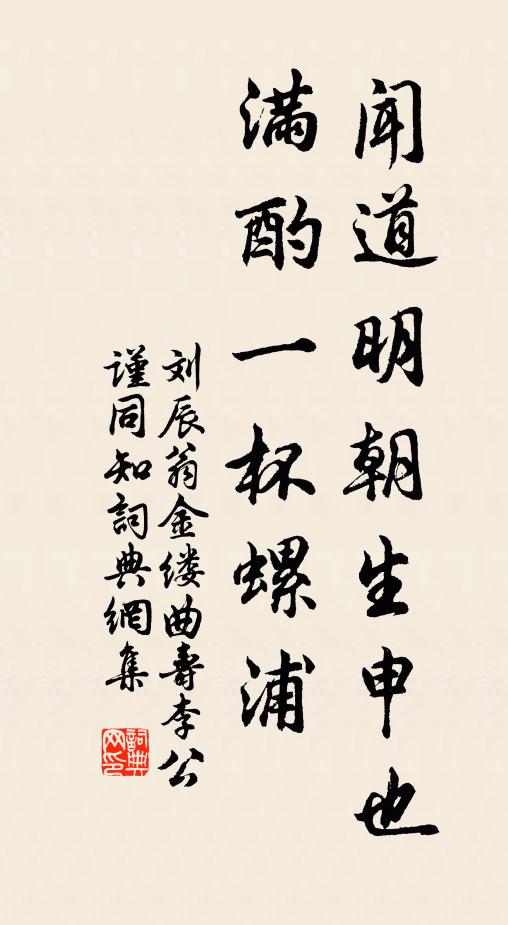 闻道明朝生申也
满酌一杯螺浦
刘辰翁金缕曲寿李公
谨同知詞典網集
詞典网印